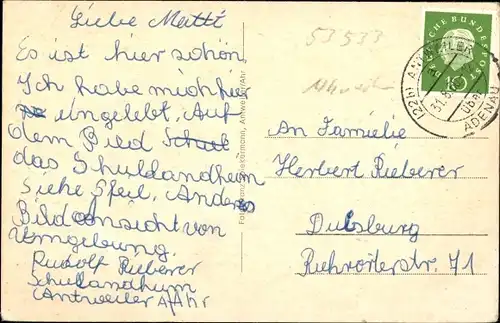 Liebe Mutti
Es ist hier schön
Ich habe mich hier
eingelebt, Auf
dem Bied
das Schullandheim
siehe Pfeil, Anderes
Bild Ansicht von
Umgebung.
Rudolf Rieberer
Schullandheim
(Antweiler A/Ahr
Antweiler/Ahr
53533
DEUTSCHE BUNDESPOST
10
(22b) ANTWEILER
31.8.
über
ADENAU
An Familie
Herbert Rieberer
Duisburg
Ruhrorterstr. 71